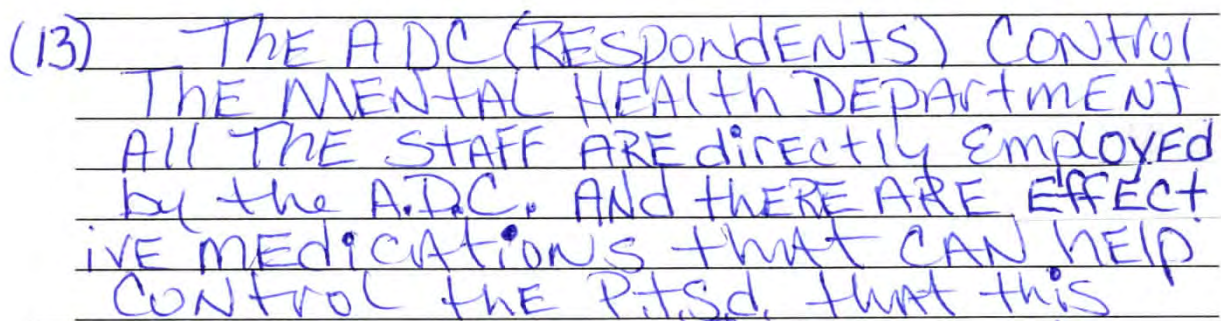 (13) THE ADC (RESPONDENTS) CONTROL
THE MENTAL HEALTH DEPARTMENT
All THE STAFF ARE directly Employed
by the A.D.C. And thERE ARE EFFECT
iVE MEdicAtioNS thAt CAN hELP
CONtrol thE P.t.S.d. thAt this